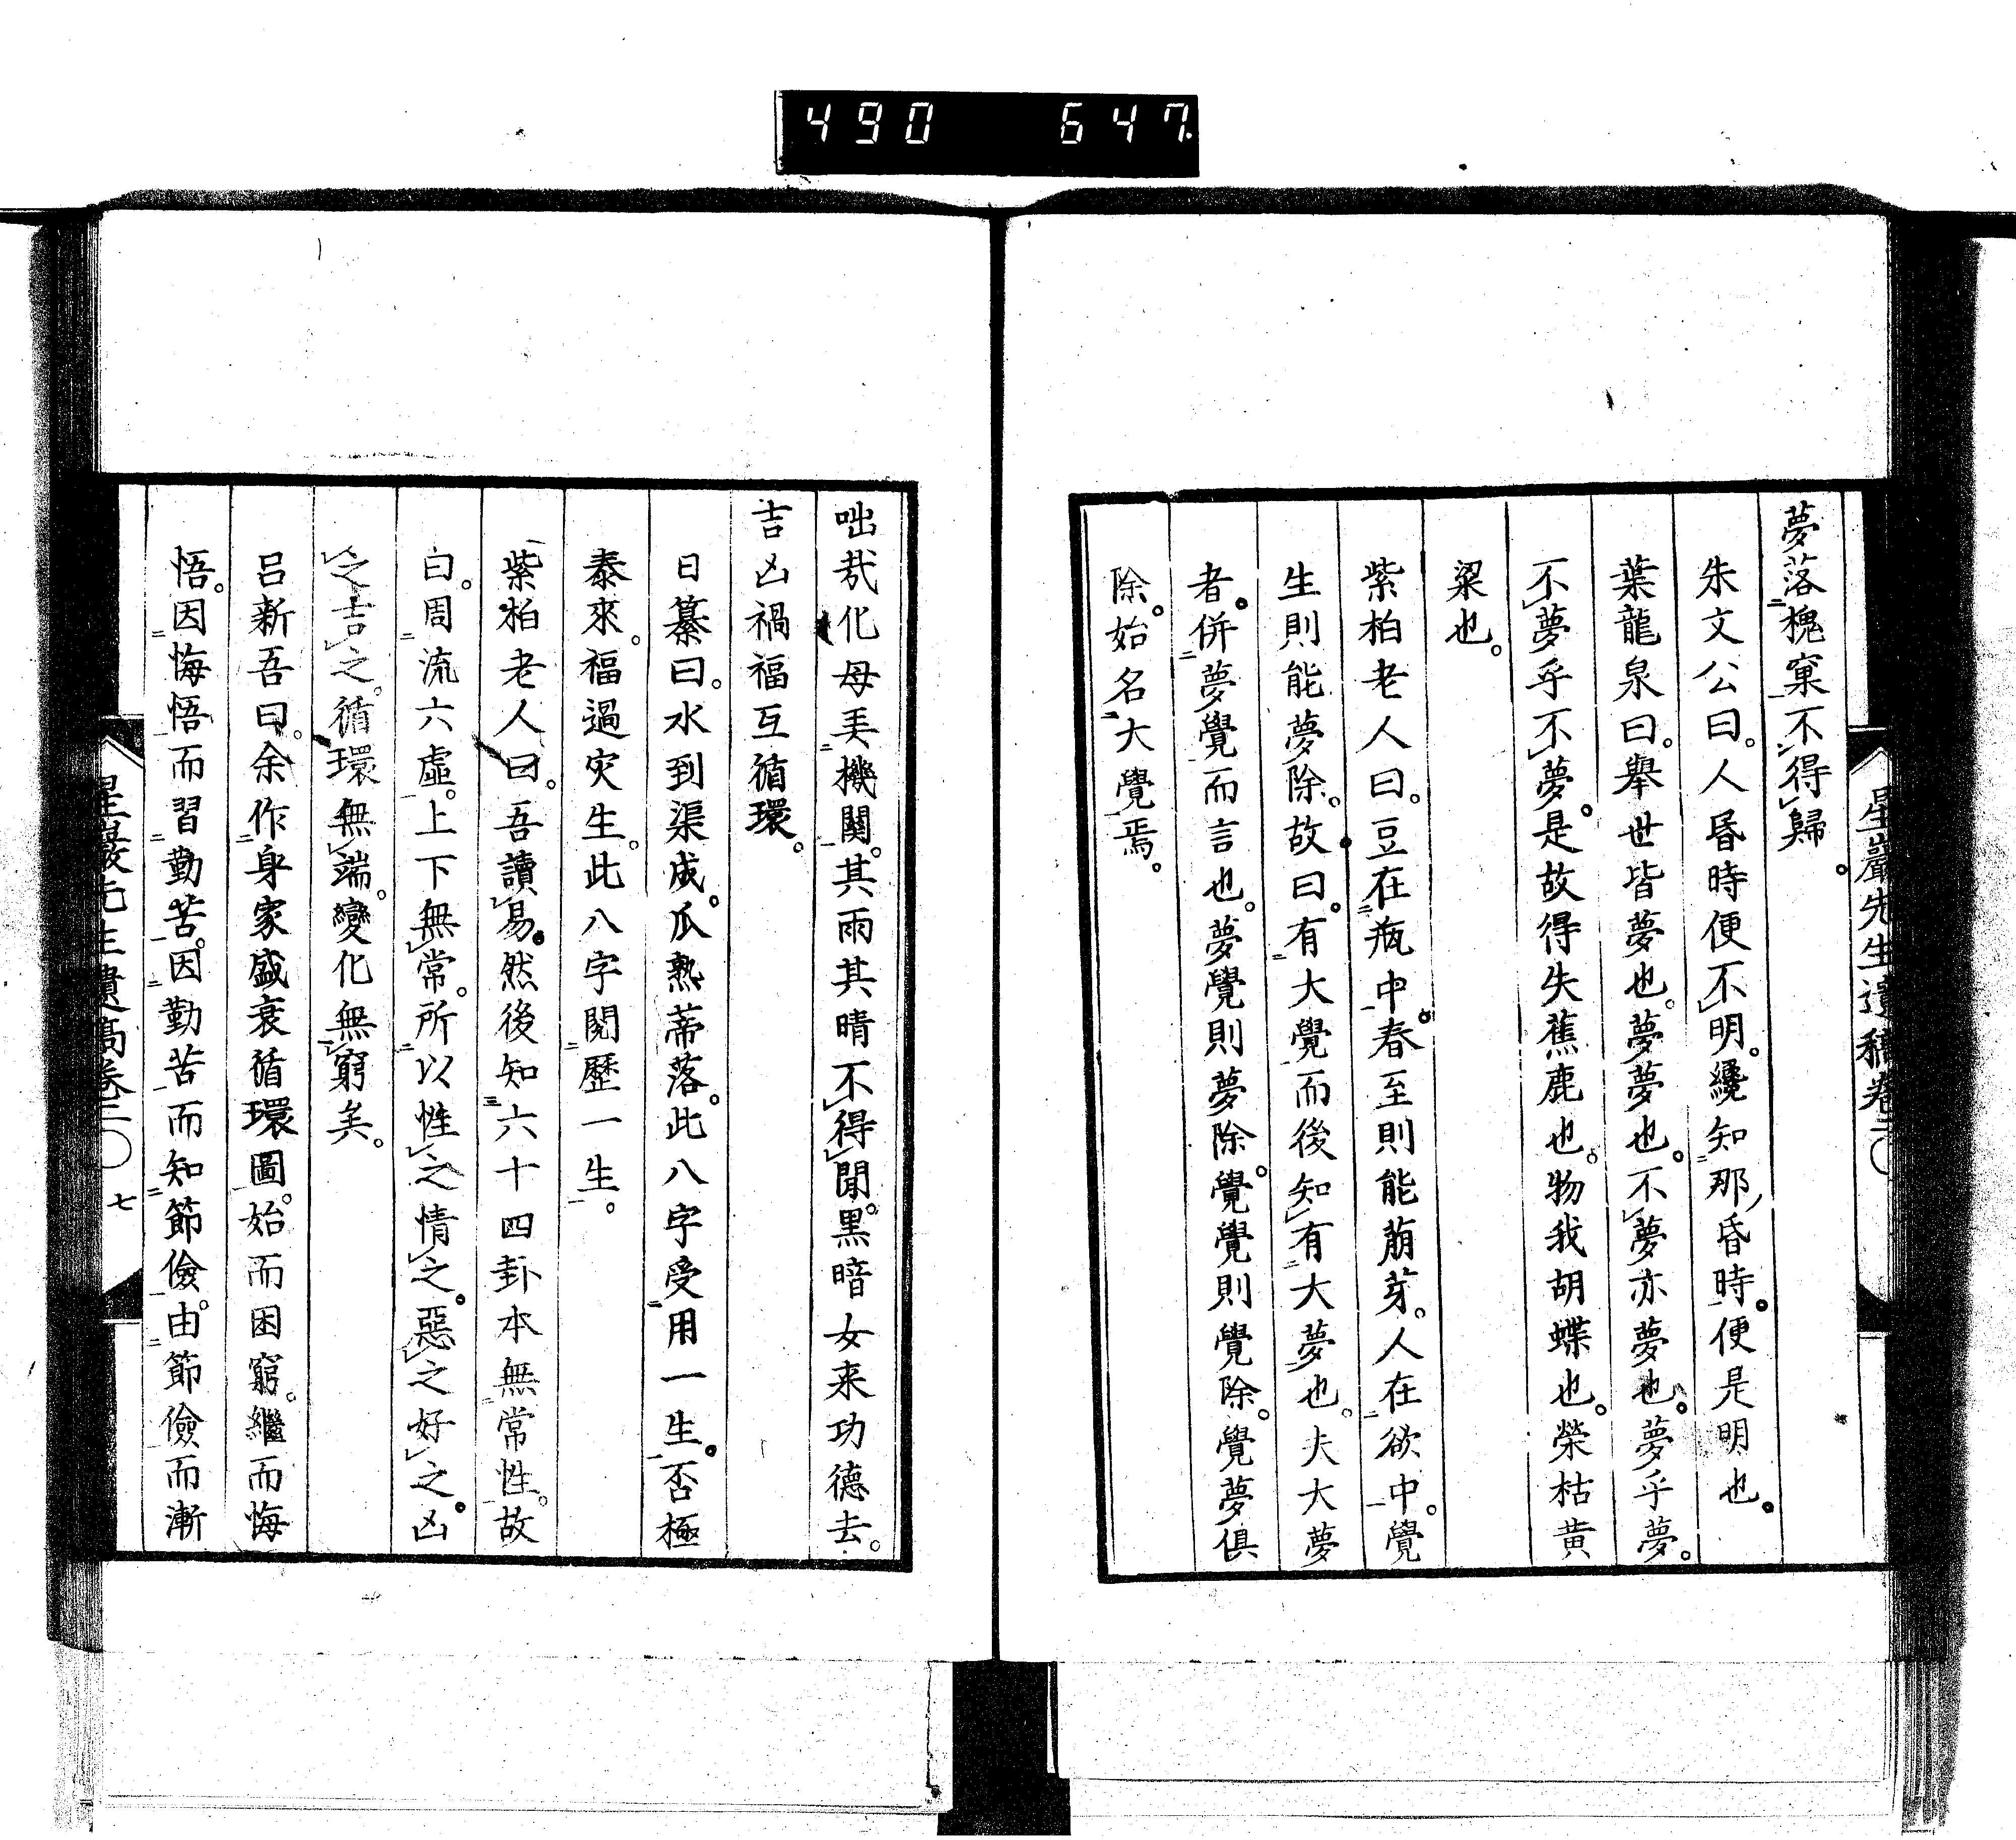 490 647
星巖先生遺稿卷二
夢落槐窠不得歸。
朱文公曰。人昏時便不明。纔知那昏時。便是明也。
葉龍泉曰。舉世皆夢也。夢夢也。不夢亦夢也。夢乎夢。
不夢乎不夢。是故得失蕉鹿也。物我胡蝶也。榮枯黃
粱也。
紫柏老人曰。豆在瓶中。春至則能萠芽。人在欲中。覺
生則能夢除。故曰。有大覺而後知有大夢也。夫大夢
者。併夢覺而言也。夢覺則夢除。覺覺則覺除。覺夢俱
除。始名大覺焉。
咄哉化母弄機關。其雨其晴不得閒。黑暗女来功德去。
吉凶禍福互循環。
日纂曰。水到渠成。瓜熟蒂落。此八字受用一生。否極
泰來。福過灾生。此八字閱歷一生。
紫柏老人曰。吾讀易。然後知六十四卦本無常性。故
曰。周流六虛。上下無常。所以性之情之。惡之好之。凶
之吉之。循環無端。變化無窮矣。
吕新吾曰。余作身家盛衰循環圖。始而困窮。繼而悔
悟。因悔悟而習勤苦。因勤苦而知節儉。由節儉而漸
星巖先生遺稿卷二
七